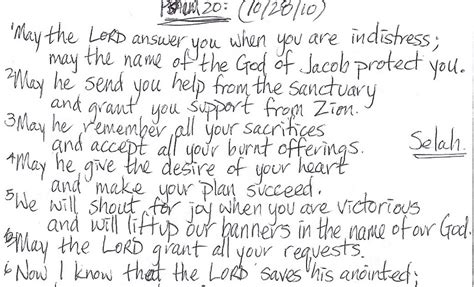 Psalm 20: (10/28/10)
1May the LORD answer you when you are in distress;
may the name of the God of Jacob protect you.
2May he send you help from the sanctuary
and grant you support from Zion.
3May he remember all your sacrifices
and accept all your burnt offerings. Selah.
4May he give the desire of your heart
and make your plan succeed.
5We will shout for joy when you are victorious
and will lift up our banners in the name of our God.
May the LORD grant all your requests.
6Now I know that the LORD saves his anointed;